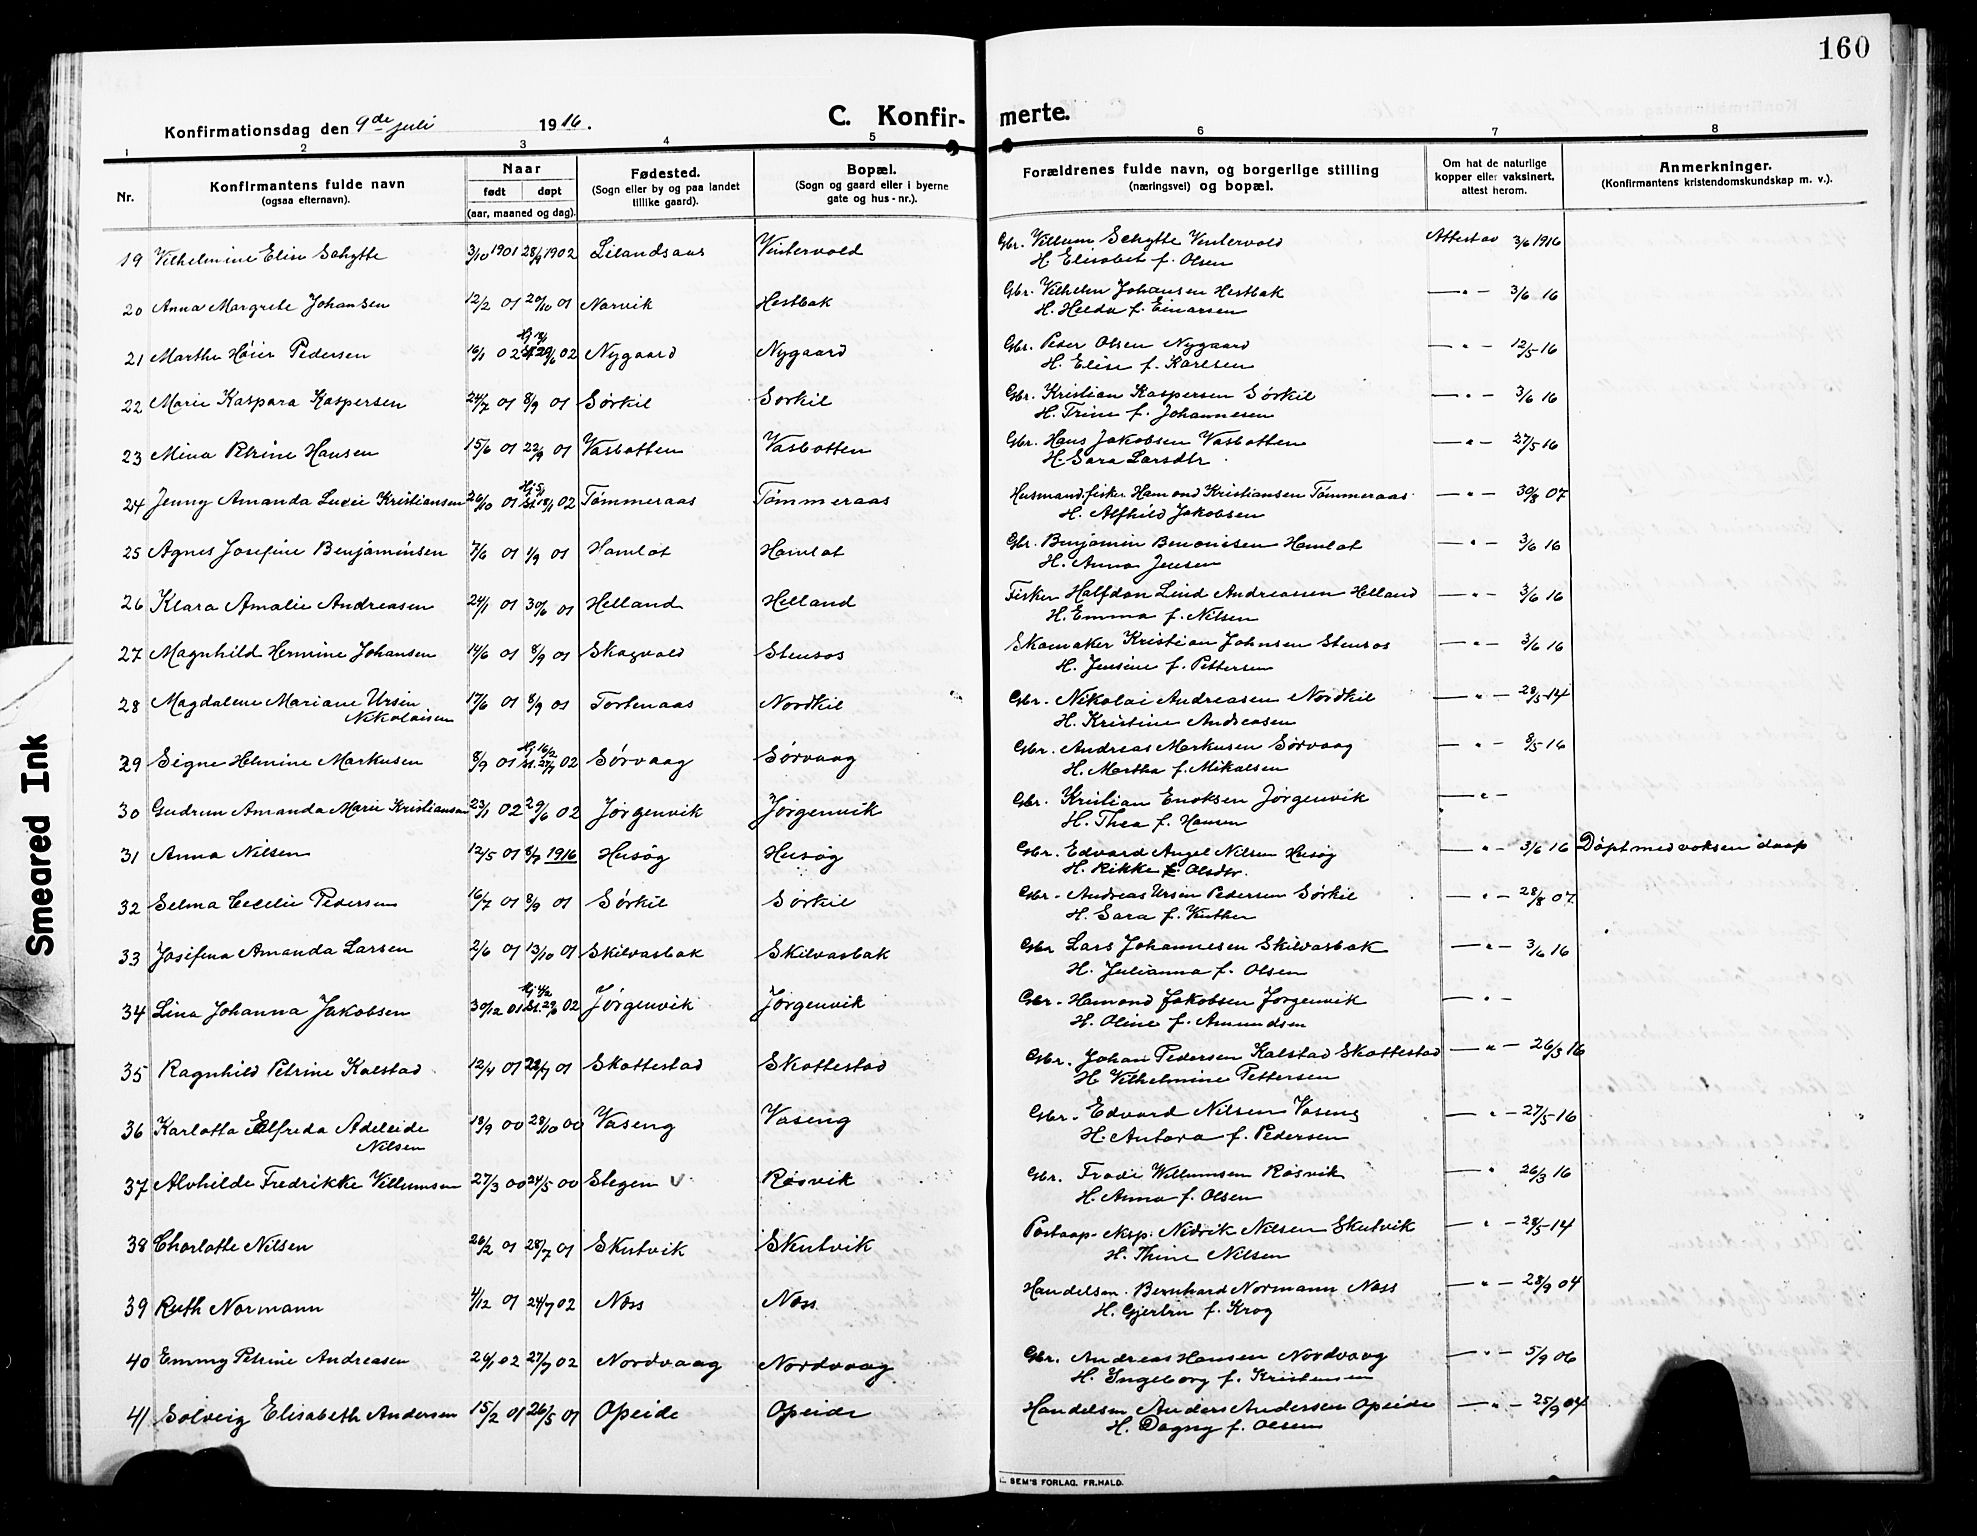 160
C. Konfirmerte.
Konfirmationsdag den 9de juli 1916.
1 2 3 4 5 6 7 8
Nr.
Konfirmantens fulde navn
(ogsaa efternavn).
Naar
født døpt
(aar, maaned og dag).
Fødested.
(Sogn eller by og paa landet
tillike gaard).
Bopæl.
(Sogn og gaard eller i byerne
gate og hus-nr.).
Forældrenes fulde navn, og borgerlige stilling
(næringsvei) og bopæl.
Om hat de naturlige
kopper eller vaksinert,
attest herom.
Anmerkninger.
(Konfirmantens kristendomskundskap m. v.).
19 Vilhelmine Elise Schytte 3/10 1901 28/9 1902 Lilandsaas Vintervold Gbr. Villum Schytte Vintervold Attest av 3/6 1916
H. Elisabet f. Olsen
20 Anna Margrete Johansen 12/2 01 20/10 01 Narvik Hestbak Gbr. Vilhelm Johansen Hestbak — " — 3/6 16
H. Helda f. Einarsen
21 Martha Høier Pedersen 16/1 02 29/6 02 Nygaard Nygaard Gbr. Peder Olsen Nygaard — " — 12/5 16
H. Elise f. Karlsen
22 Marie Kaspara Kaspersen 24/7 01 8/9 01 Sørkil Sørkil Gbr. Kristian Kaspersen Sørkil — " — 3/6 16
H. Trine f. Johannesen
23 Mina Petrine Hansen 15/6 01 22/9 01 Vasbotten Vasbotten Gbr. Hans Jakobsen Vasbotten — " — 27/5 16
H. Sara Larsdtr.
24 Jenny Amanda Lucie Kristiansen 26/10 01 02 Tømmeraas Tømmeraas Husmand, fisker Hamond Kristiansen Tømmeraas — " — 30/8 07
H. Alfhild Jakobsen
25 Agnes Josefine Benjaminsen 7/6 01 1/9 01 Hamlot Hamlot Gbr. Benjamin Benonisen Hamlot — " — 3/6 16
H. Anna Jensen
26 Klara Amalie Andreasen 24/1 01 30/6 01 Helland Helland Fisker Halfdan Lind Andreassen Helland — " — 3/6 16
H. Emma f. Nilsen
27 Magnhild Hermine Johansen 14/6 01 8/9 01 Skagvold Stensos Skomaker Kristian Johnsen Stensos — " — 3/6 16
H. Jensine f. Pettersen
28 Magdalene Mariane Ursin 17/6 01 8/9 01 Tortenaas Nordkil Gbr. Nikolai Andreasen Nordkil — " — 28/5-14
Nikolaisen H. Kristine Andreasen
29 Signe Helmine Markusen 8/9 01 Hj. 16/2 st. 27/7 02 Sørvaag Sørvaag Gbr. Andreas Markusen Sørvaag — " — 8/5 16
H. Martha f. Mikalsen
30 Gudrun Amanda Marie Kristiansen 23/1 02 29/6 02 Jørgenvik Jørgenvik Gbr. Kristian Enoksen Jørgenvik — " —
H. Thea f. Hansen
31 Anna Nilsen 12/5 01 8/7 1916 Husøy Husøy Gbr. Edvard Angel Nilsen Husøy — " — 3/6 16 Døpt med voksen daap
H. Rikke f. Olsdtr.
32 Selma Cecelie Pedersen 16/7 01 8/9 01 Sørkil Sørkil Gbr. Andreas Ursin Pedersen Sørkil — " — 28/8 07
H. Sara f. Kuther
33 Josefina Amanda Larsen 2/6 01 13/10 01 Skilvasbak Skilvasbak Gbr. Lars Johannesen Skilvasbak — " — 3/6 16
H. Julianna f. Olsen
34 Lina Johanna Jakobsen 30/12 01 Hj. 4/2 st. 29/6 02 Jørgenvik Jørgenvik Gbr. Hamond Jakobsen Jørgenvik — " —
H. Oline f. Amundsen
35 Ragnhild Petrine Kalstad 12/4 01 01 Skottestad Skottestad Gbr. Johan Pedersen Kalstad Skottestad — " — 26/3 16
H. Vilhelmine Pettersen
36 Karlotta Elfreda Adeleide 18/9 00 28/10 00 Vaseng Vaseng Gbr. Edvard Nilsen Vaseng — " — 27/5-16
Nilsen H. Antora f. Pedersen
37 Alvhilde Fredrikke Villumsen 27/3 00 24/5 00 Stegen v Røsvik Gbr. Frodi Willumsen Røsvik — " 26/3 16
H. Anna f. Olsen
38 Charlotte Nilsen 26/2 01 28/7 01 Skutvik Skutvik Postaap. eksp. Nidrik Nilsen Skutvik — " — 28/5-14
H. Thine Nilsen
39 Ruth Normann 4/12 01 24/7 02 Næss Næss Handelsm. Bernhard Normann Næss — " — 28/9 04
H. Gjertru f. Krog
40 Emmy Petrine Andreasen 26/1 02 27/7 02 Nordvaag Nordvaag Gbr. Andreas Hansen Nordvaag — " — 5/9 06
H. Ingeborg f. Kristensen
41 Solveig Elisabeth Andersen 15/2 01 26/5 01 Opeide Opeide Handelsm Anders Andersen Opeide — " — 25/9 04
H. Dagny f. Olsen
SEM'S FORLAG. FR.HALD.
Smeared Ink